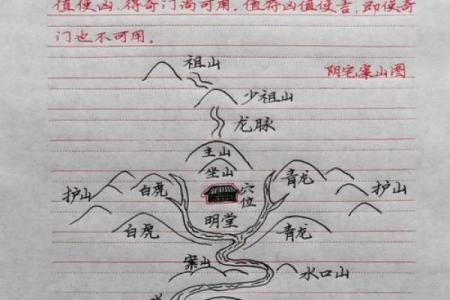 值使凶,得奇门尚可用。值符凶值使吉,即使奇
门也不可用。
阴宅案山图
祖山
少祖山
龙脉
主山
坐山
护山 白虎 穴位 青龙 护山
白虎 明堂 青龙
案山 水口山